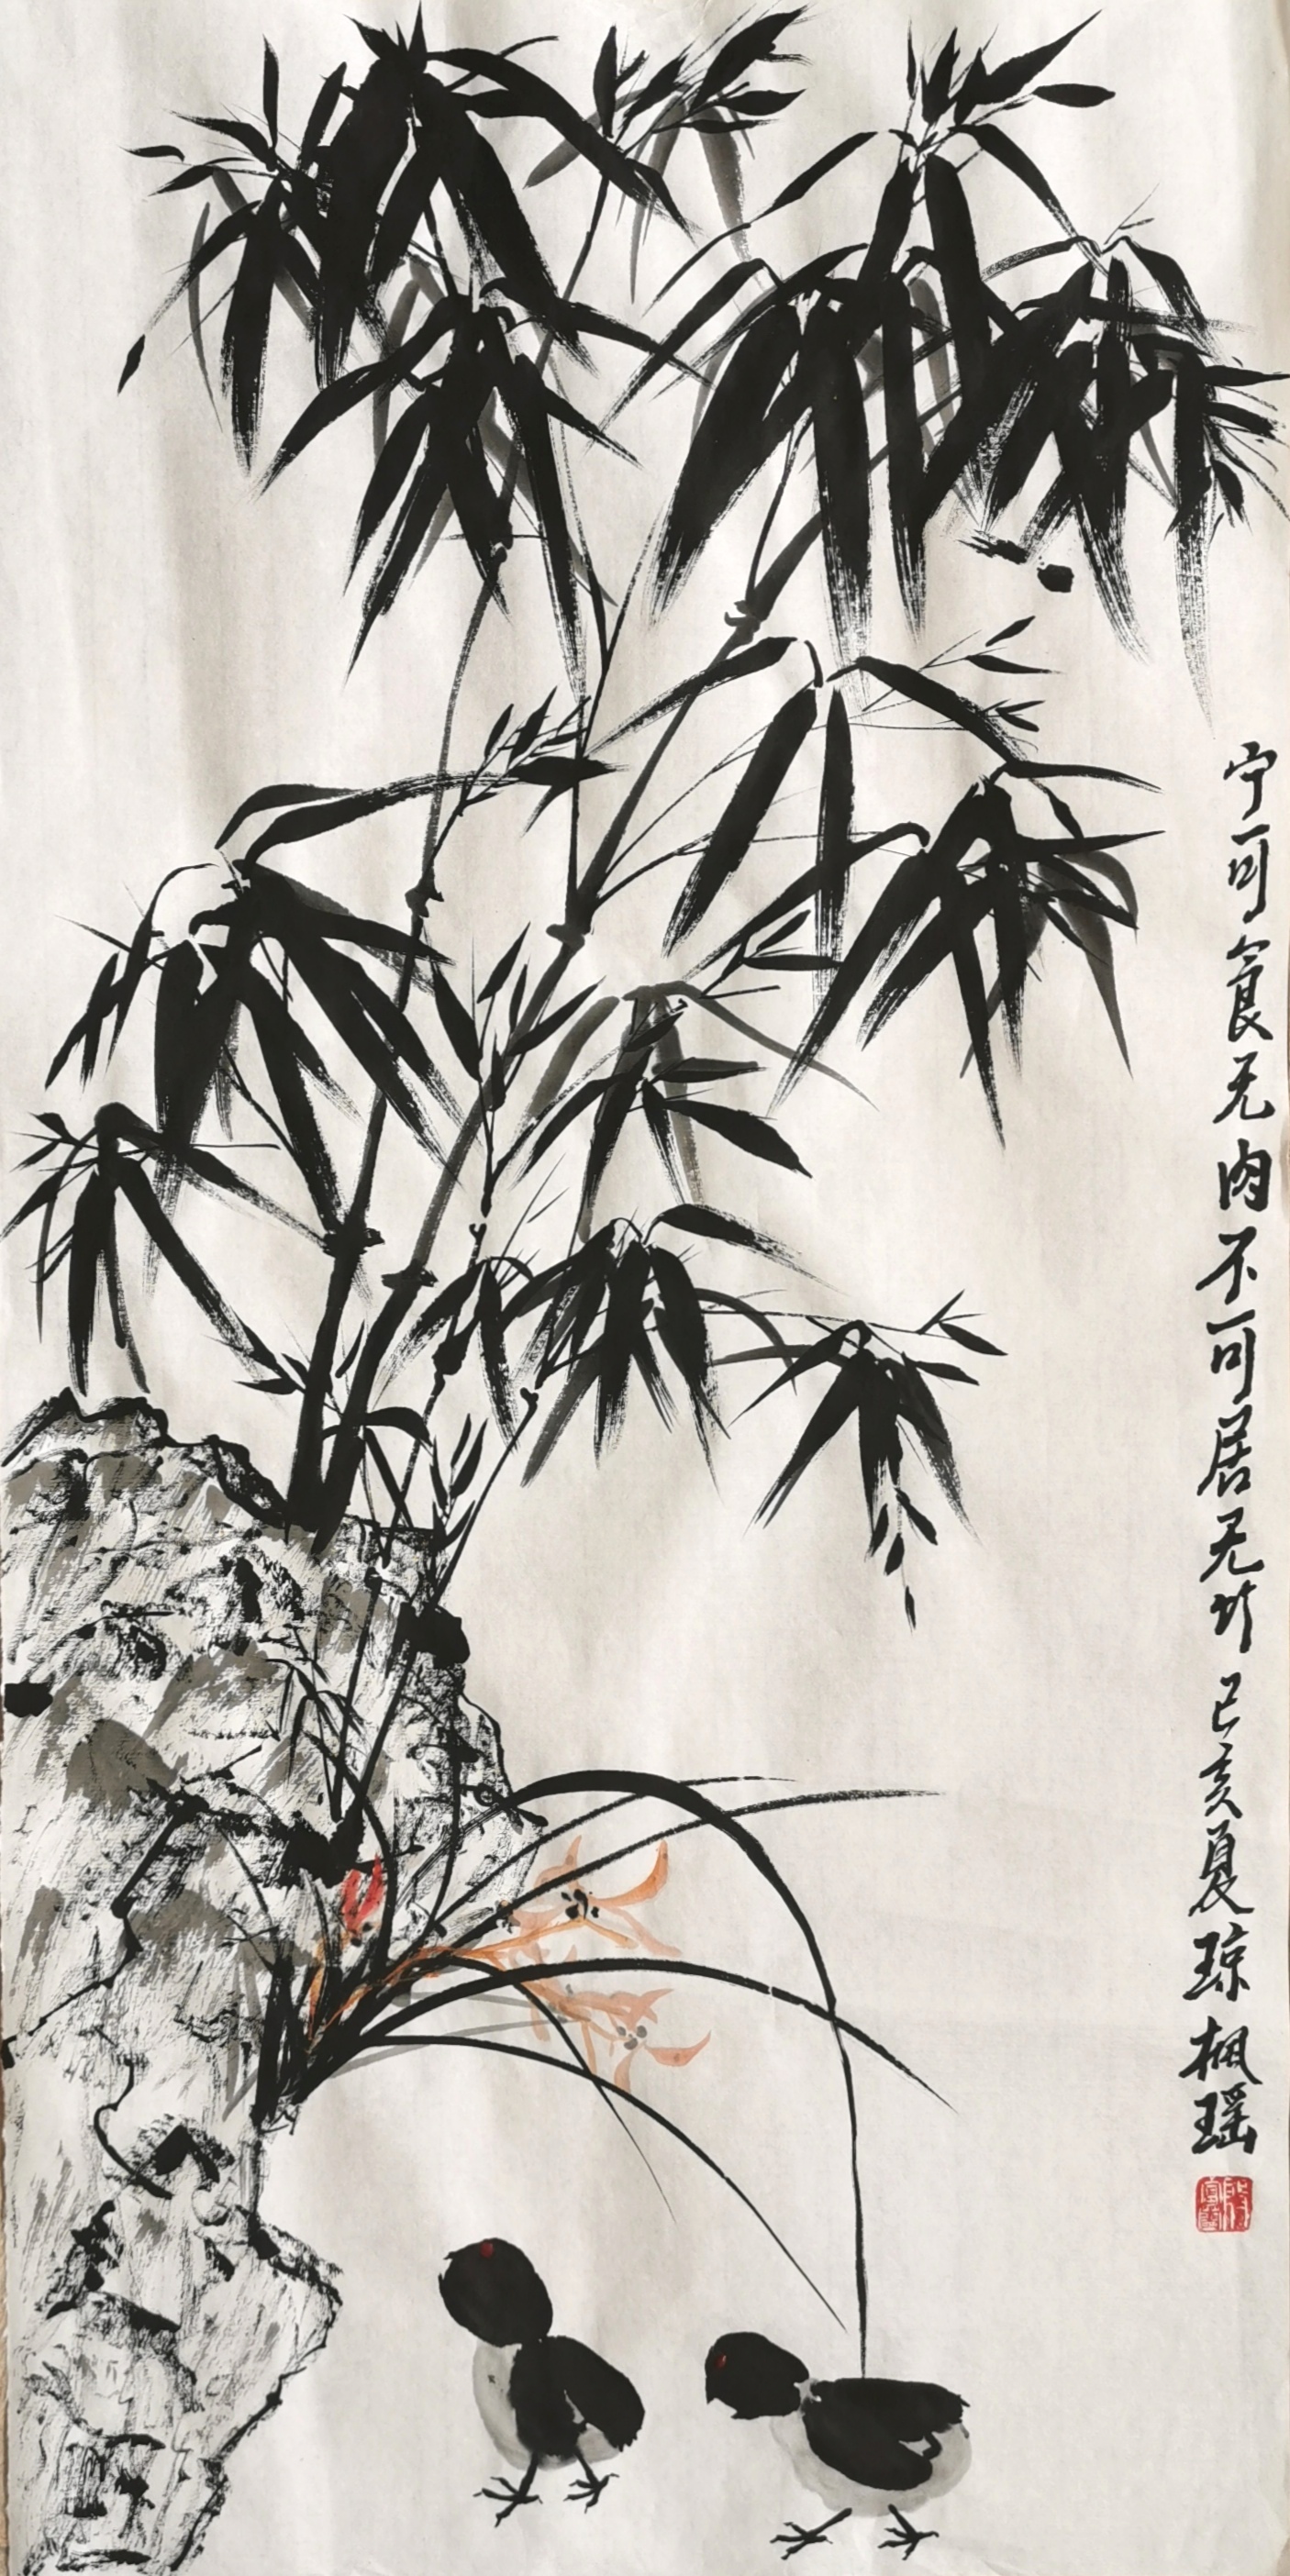 宁可食无肉不可居无竹己亥夏琼枫瑶